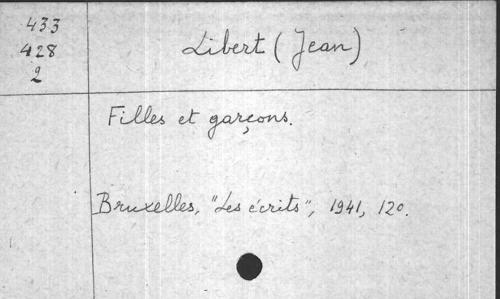 433
428
2
Libert (Jean)
Filles et garçons.
Bruxelles, "Les écrits", 1941, 120.